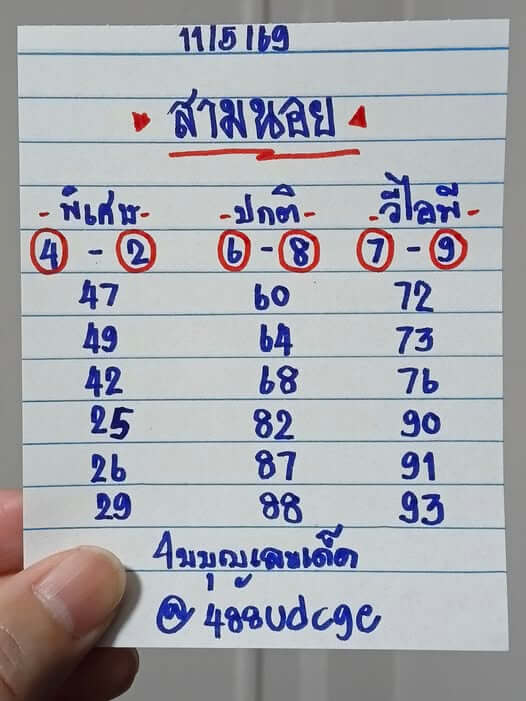 11/5/69
สามนอย
-พิเศษ- -ปกติ- -วีไอพี-
4 - 2 6 - 8 7 - 9
47 60 72
49 64 73
42 68 76
25 82 90
26 87 91
29 88 93
@488udcge